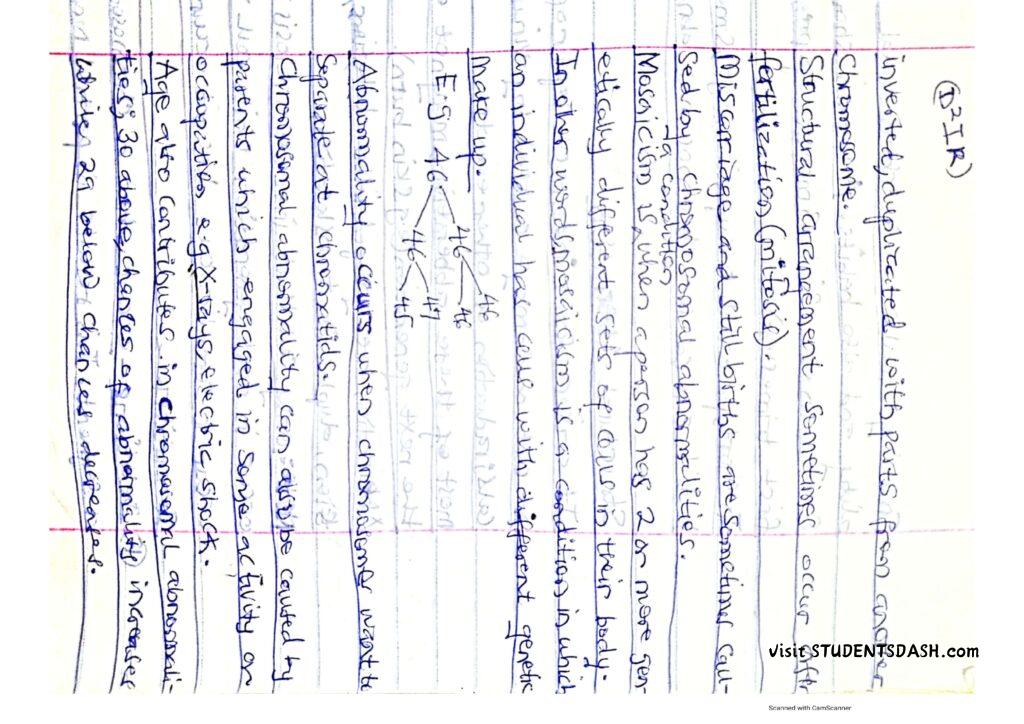 (D²IR)
inverted, duplicated with parts from another
Chromosome.
Structural arrangement sometimes occur after
fertilization (mitosis).
Miscarriage and still births are sometimes cau-
sed by chromosomal abnormalities.
Mosaicism is a condition when a person has 2 or more gen-
etically different sets of cells in their body.
In other words, mosaicism is a condition in which
an individual has cells with different genetic
make up.
E.g 46 46 46
46
46 47
45
Abnormality occurs when chromosomes want to
Separate at chromatids.
Chromosomal abnormality can also be caused by
parents which engaged in some activity or
occupation e.g X-rays, electric shock.
Age also contributes in chromosomal abnormali-
ties; 30 above, chances of abnormality increases
while 29 below chances decreases.
visit STUDENTSDASH.com
Scanned with CamScanner